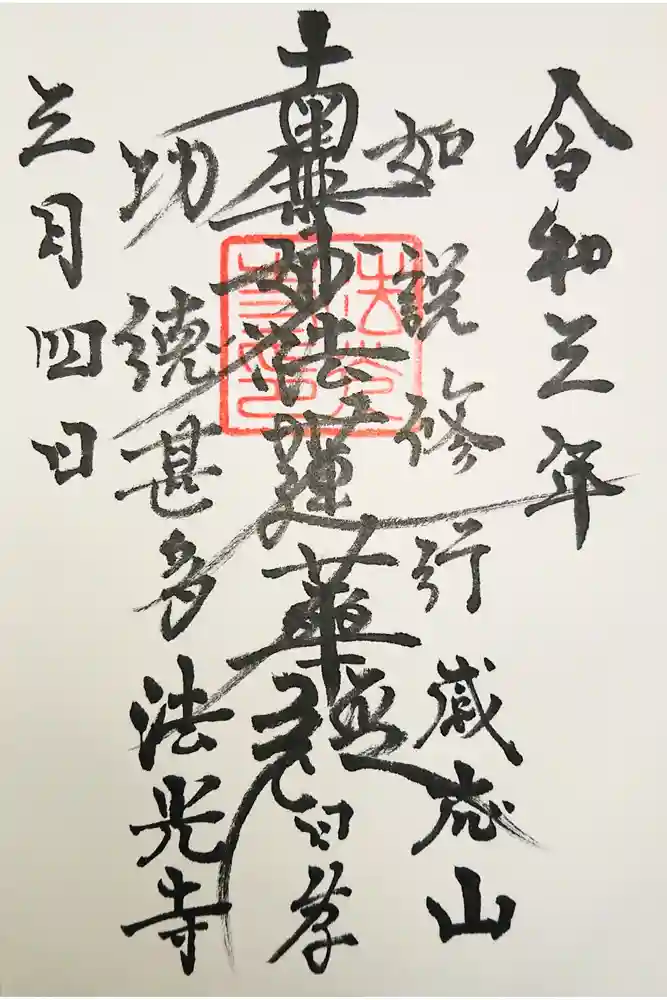 令和三年
如説修行 感応山
南無妙法蓮華経 日
功徳甚多 法光寺
三月四日
法光寺印